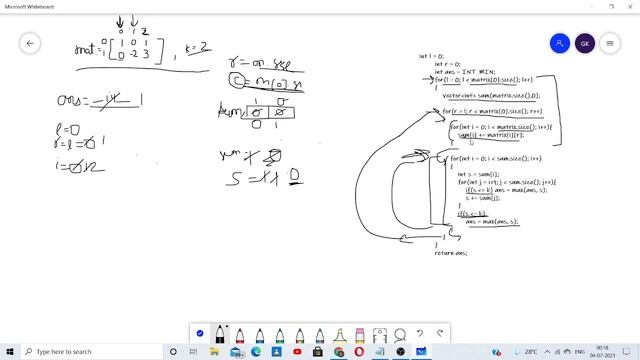 Microsoft Whiteboard
GK
0 1 2
mat = 0 [ 1 0 1
1 0 -2 3 ] , k = 2
ans = 1
l = 0
r = l = 0 1
i = 0 1 2
c = m[0].s
sum
1 0
0 0
0 1
S = 1 1 0
int l = 0;
int r = 0;
int ans = INT_MIN;
for(l = 0; l < matrix[0].size(); l++)
{
vector<int> sum(matrix.size(),0);
for(r = l; r < matrix[0].size(); r++)
{
for(int i = 0; i < matrix.size(); i++){
sum[i] += matrix[i][r];
}
for(int i = 0; i < sum.size(); i++)
{
int s = sum[i];
for(int j = i+1; j < sum.size(); j++){
if(s <= k) ans = max(ans, s);
s += sum[j];
}
if(s <= k)
ans = max(ans, s);
}
}
}
return ans;
Type here to search
28°C
ENG
00:18
04-07-2021